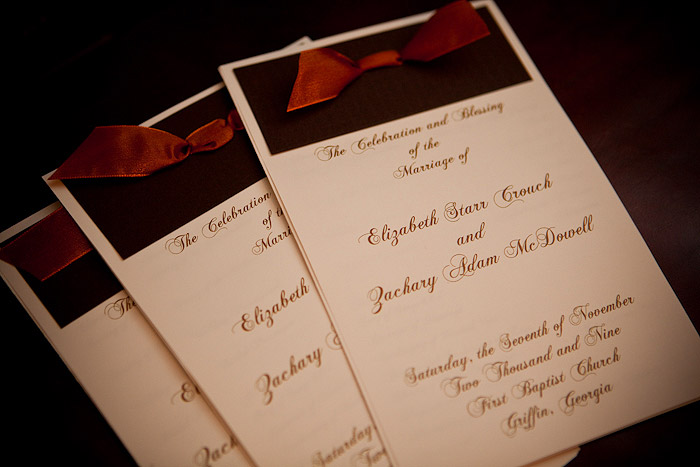 The Celebration and Blessing
of the
Marriage of
Elizabeth Starr Crouch
and
Zachary Adam McDowell
Saturday, the Seventh of November
Two Thousand and Nine
First Baptist Church
Griffin, Georgia
The Celebration
of th
Marri
Elizabeth
Zachary
Saturday
Th
E
Za